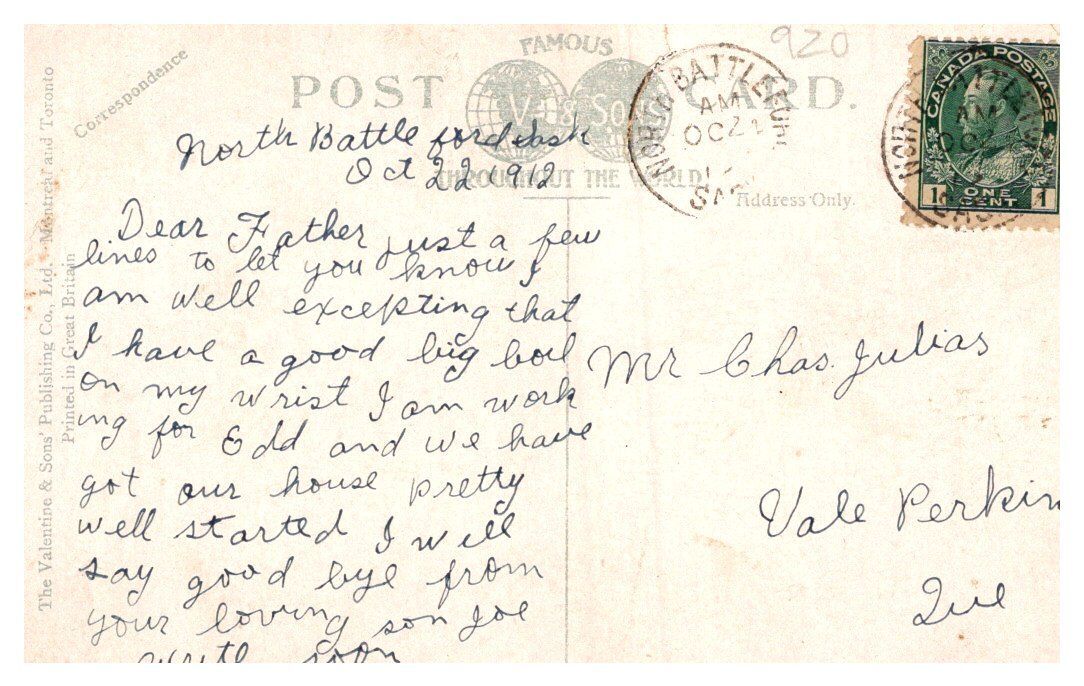 920
FAMOUS
POST CARD.
V. & Sons
THROUGHOUT THE WORLD
Correspondence
Address Only.
NORTH BATTLEFORD
AM
OC 22
SASK
CANADA POSTAGE
1 ONE CENT 1
The Valentine & Sons' Publishing Co., Ltd. Montreal and Toronto
Printed in Great Britain
North Battleford Sask
Oct 22 1912
Dear Father just a few
lines to let you know I
am well excepting that
I have a good big boil
on my wrist I am work
ing for Edd and we have
got our house pretty
well started I will
say good bye from
your loving son Joe
write soon
Mr Chas. Julias
Vale Perkin
Que